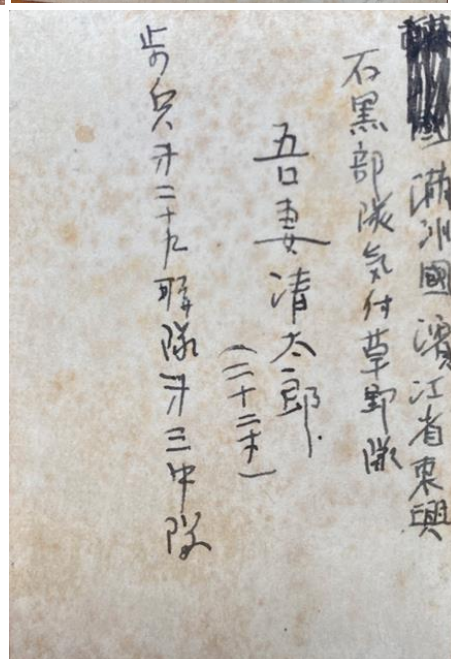 國 滿洲國 濱江省東興
石黒部隊気付草野隊
吾妻清太郎
(二十二才)
歩兵才二十九聯隊才三中隊